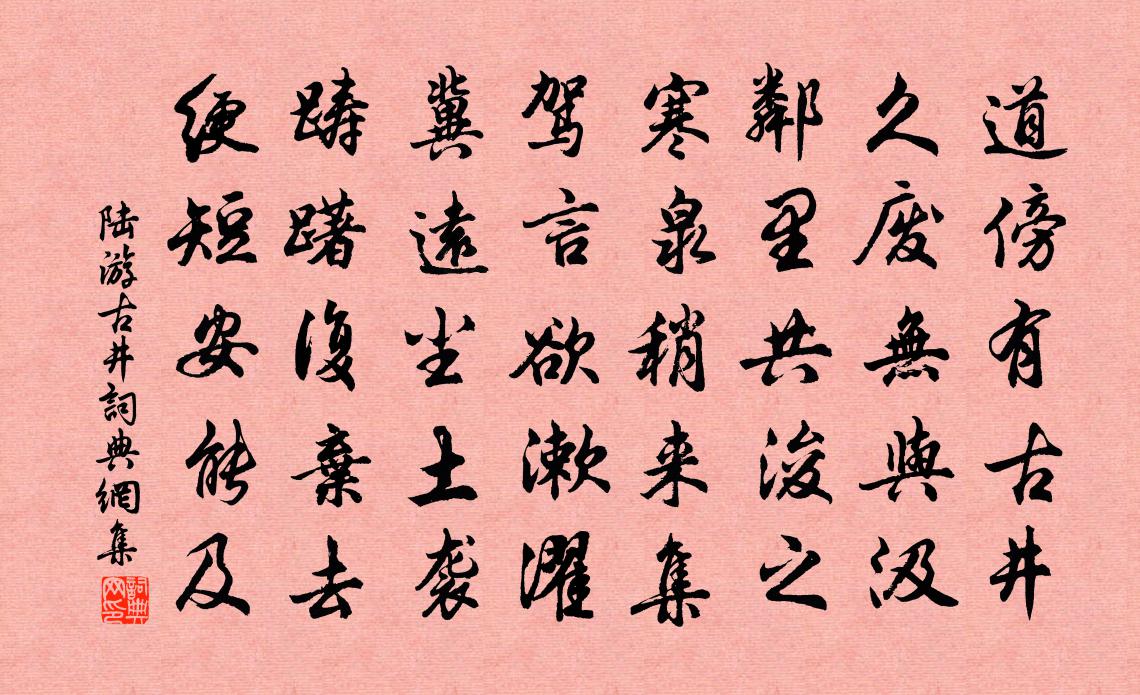 道傍有古井
久废無與汲
鄰里共浚之
寒泉稍来集
驾言欲漱濯
冀遠尘土袭
踌躇復棄去
绠短安能及
陆游古井詞典網集
詞典网印